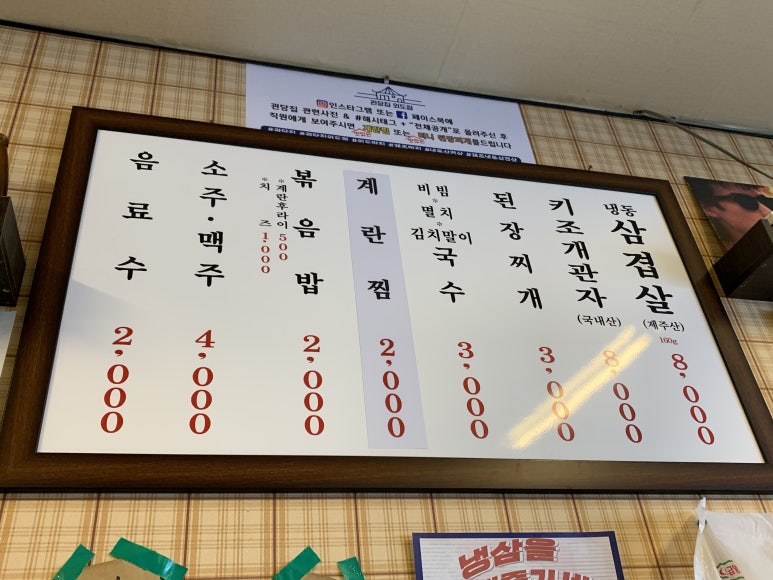 권당집 외도점
권당집 관련사진 & #해시태그 + "전체공개"로 올려주신 후
인스타그램 또는 페이스북에
직원에게 보여주시면 또는 를드립니다
냉동
삼겹살
(제주산)
160g
8,000
키조개관자
(국내산)
8,000
된장찌개
3,000
비빔
*
멸치
*
김치말이
국수
3,000
계란찜
2,000
볶음밥
*계란후라이 500
*치즈 1,000
2,000
소주·맥주
4,000
음료수
2,000
냉삼을